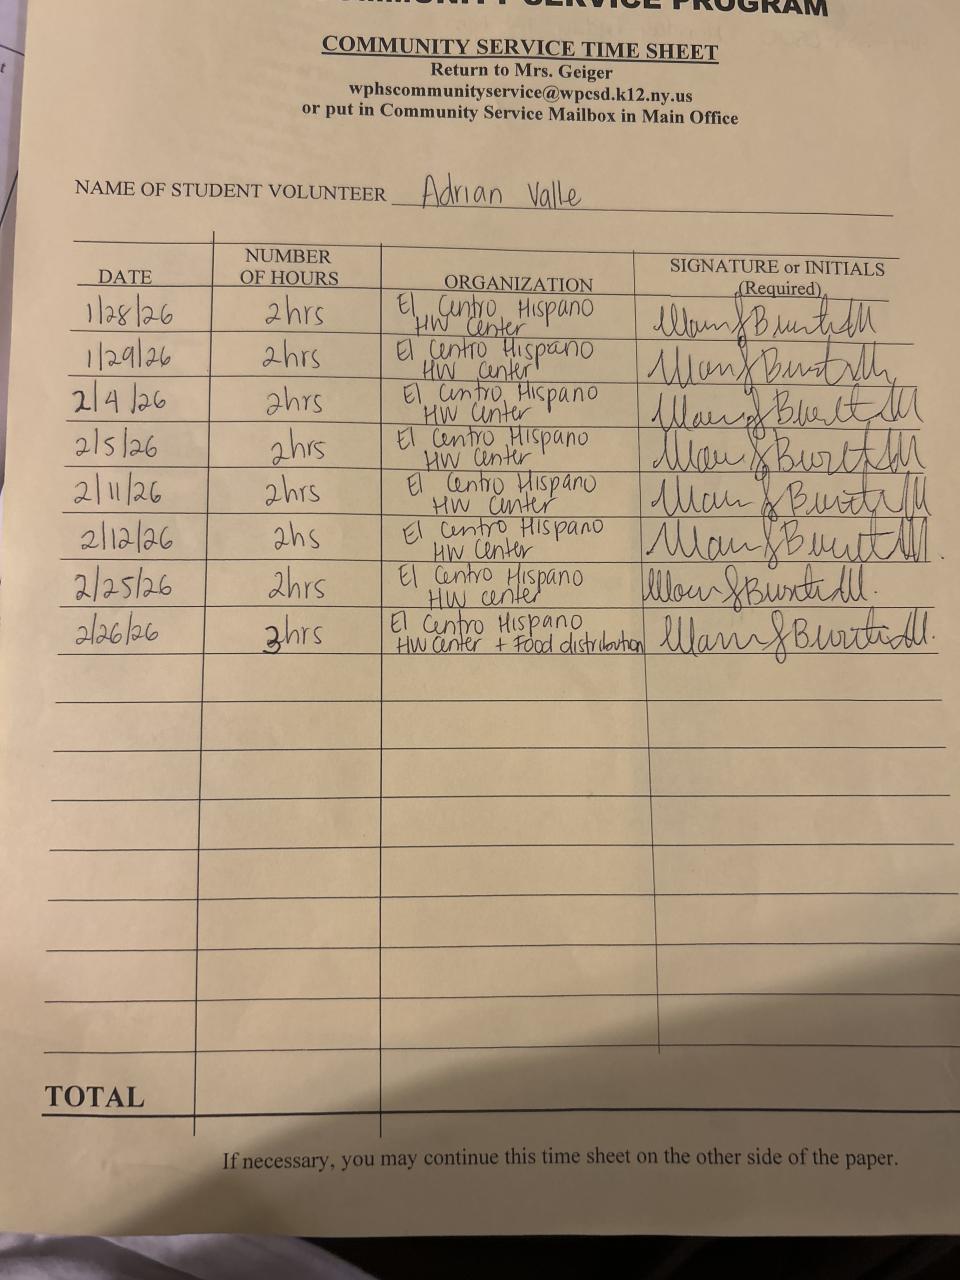 SERVICE PROGRAM
COMMUNITY SERVICE TIME SHEET
Return to Mrs. Geiger
wphscommunityservice@wpcsd.k12.ny.us
or put in Community Service Mailbox in Main Office
NAME OF STUDENT VOLUNTEER Adrian Valle
DATE NUMBER OF HOURS ORGANIZATION SIGNATURE or INITIALS (Required)
1/28/26 2hrs El Centro Hispano
HW Center
1/29/26 2hrs El Centro Hispano
HW Center
2/4/26 2hrs El Centro Hispano
HW Center
2/5/26 2hrs El Centro Hispano
HW Center
2/11/26 2hrs El Centro Hispano
HW Center
2/12/26 2hs El Centro Hispano
HW Center
2/25/26 2hrs El Centro Hispano
HW center
2/26/26 3hrs El Centro Hispano
HW Center + Food distribution
TOTAL
If necessary, you may continue this time sheet on the other side of the paper.